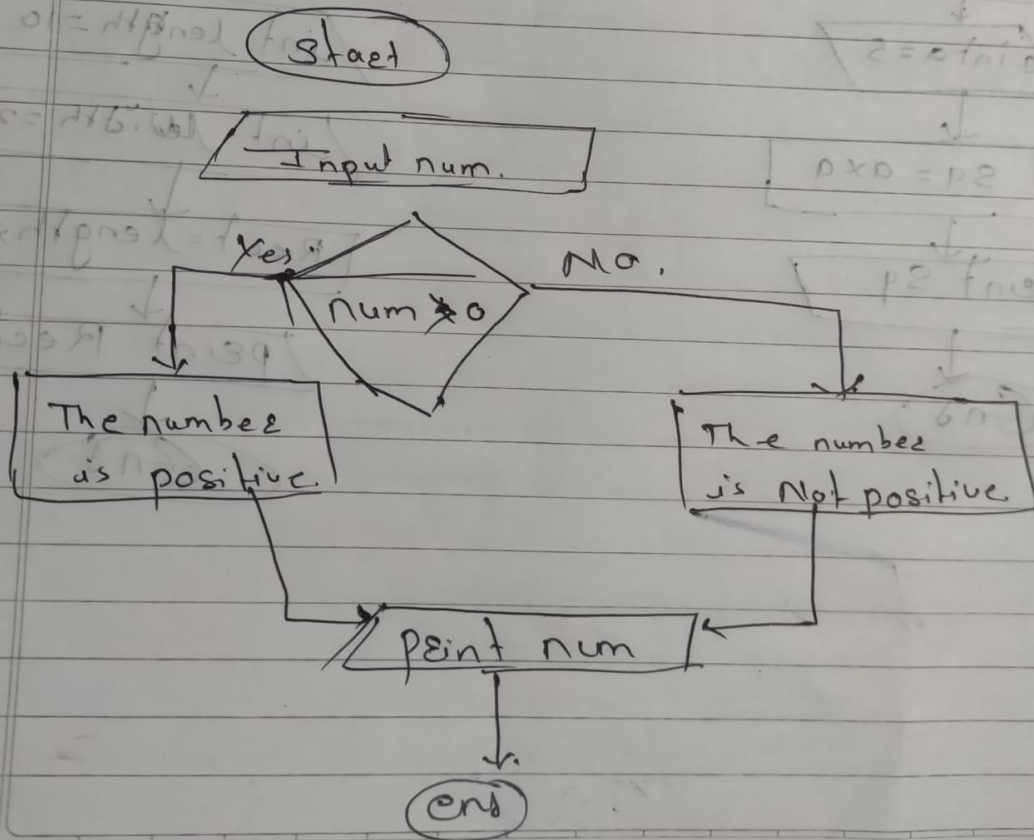 Start
Input num.
Yes.
No.
num > 0
The number
is positive.
The number
is Not positive
print num
end